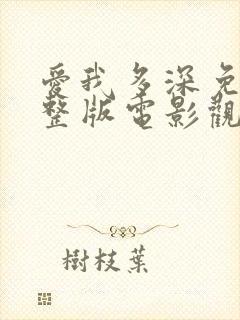 愛我多深免
整版電影觀
樹枝葉